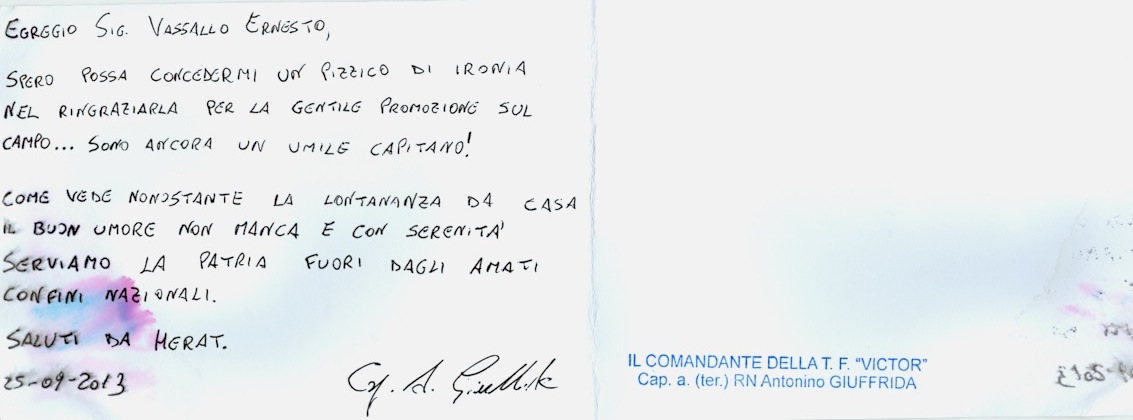 EGREGIO SIG. VASSALLO ERNESTO,
SPERO POSSA CONCEDERMI UN PIZZICO DI IRONIA
NEL RINGRAZIARLA PER LA GENTILE PROMOZIONE SUL
CAMPO... SONO ANCORA UN UMILE CAPITANO!
COME VEDE NONOSTANTE LA LONTANANZA DA CASA
IL BUON UMORE NON MANCA E CON SERENITA'
SERVIAMO LA PATRIA FUORI DAGLI AMATI
CONFINI NAZIONALI.
SALUTI DA HERAT.
25-09-2013
IL COMANDANTE DELLA T. F. "VICTOR"
Cap. a. (ter.) RN Antonino GIUFFRIDA